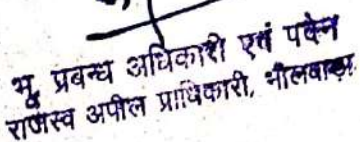 भू प्रबन्ध अधिकारी एवं पदेन
राजस्व अपील प्राधिकारी, भीलवाड़ा